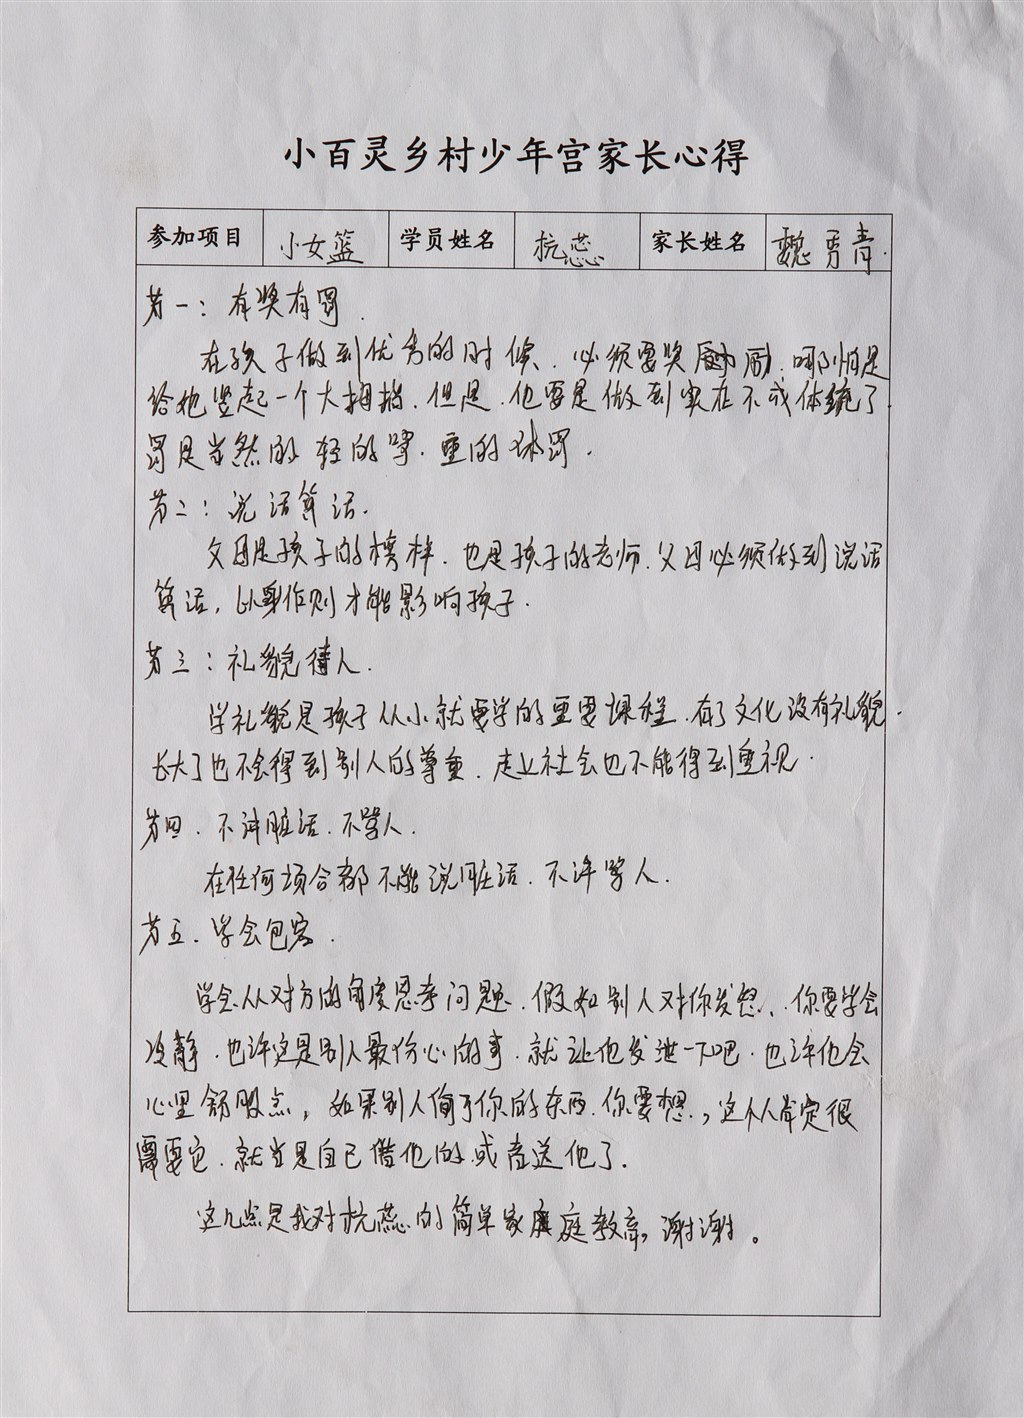 小百灵乡村少年宫家长心得
参加项目 小女篮 学员姓名 杭蕊 家长姓名 魏勇青.
第一：有奖有罚.
在孩子做到优秀的时候、必须要奖励，哪怕是
给他竖起一个大拇指.但是.他要是做到实在不成体统了
罚是当然的 轻的骂.重的体罚.
第二：说话算话.
父母是孩子的榜样.也是孩子的老师.父母必须做到说话
算话，以身作则才能影响孩子.
第三：礼貌待人.
学礼貌是孩子从小就要学的重要课程.有了文化没有礼貌.
长大了也不会得到别人的尊重.走上社会也不能得到重视.
第四.不讲脏话.不骂人.
在任何场合都不能说脏话.不许骂人.
第五.学会包容.
学会从对方的角度思考问题.假如别人对你发怒、你要学会
冷静.也许这是别人最伤心的事.就让他发泄一下吧.也许他会
心里舒服点，如果别人偷了你的东西.你要想，这个人肯定很
需要它.就当是自己借他的或者送他了.
这几点是我对杭蕊的简单家庭教育，谢谢。